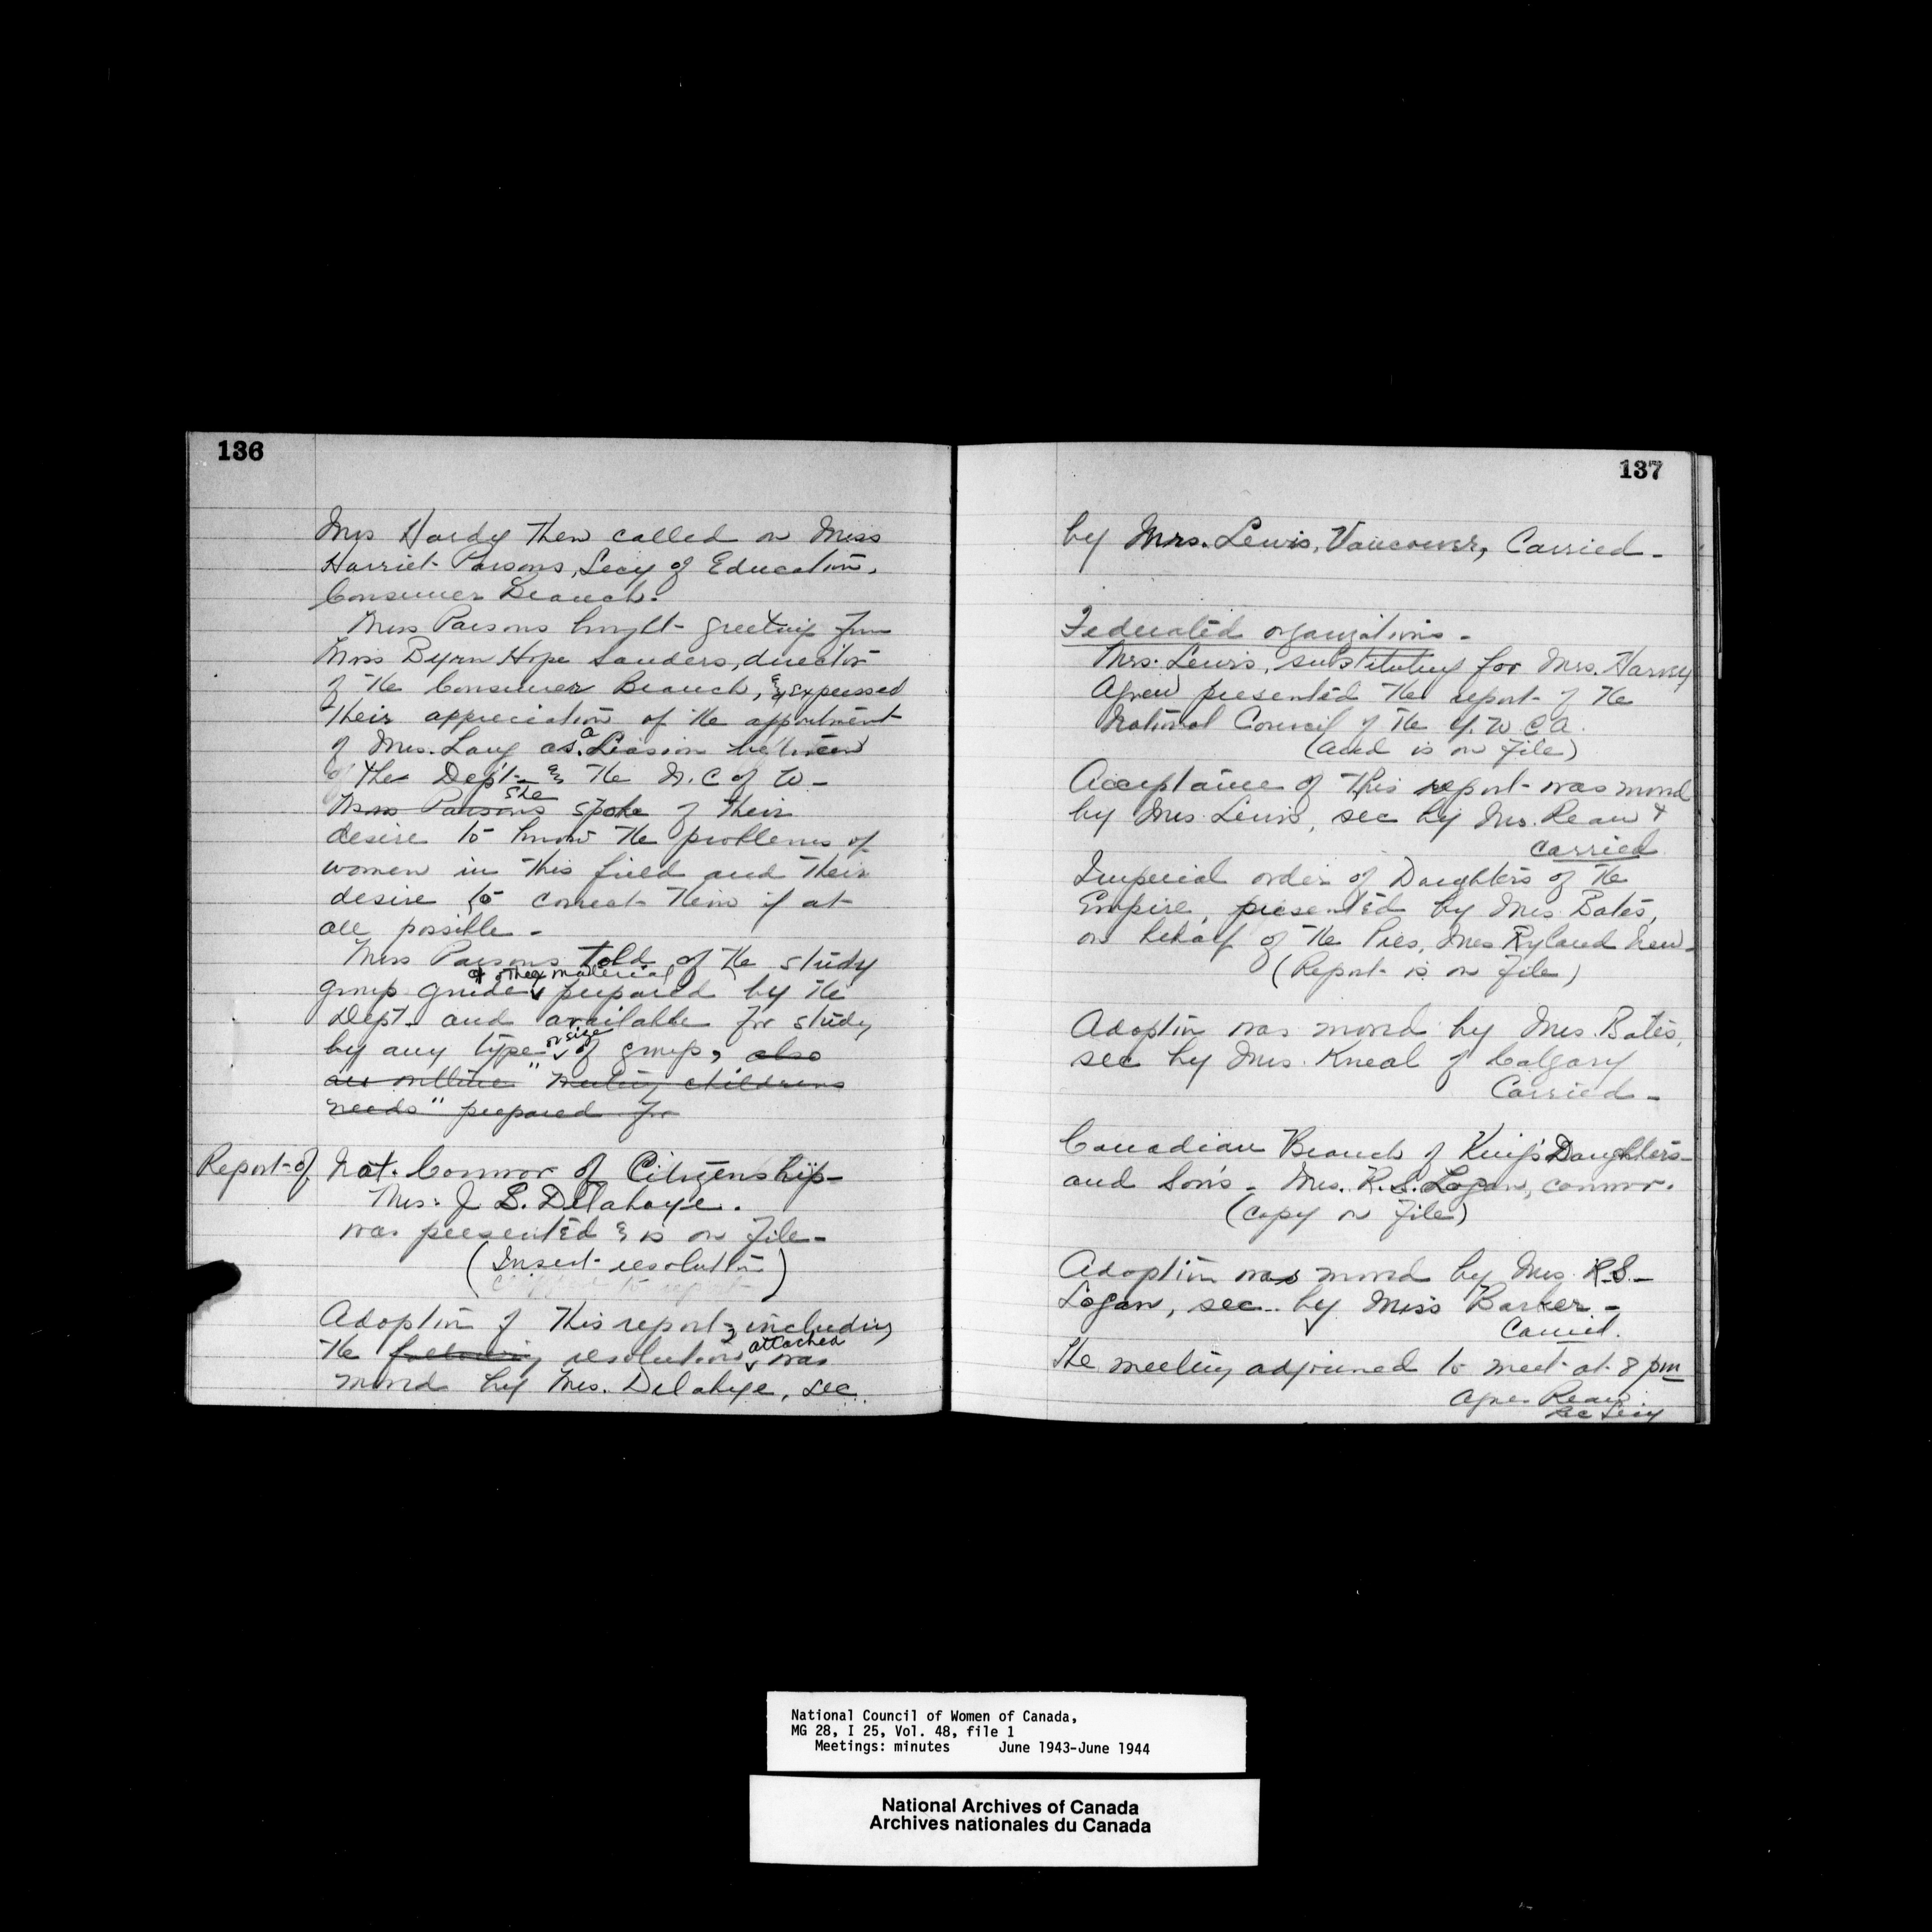 136
Mrs Hardy then called on Miss
Harriet Parsons, Secy of Education,
Consumer Branch.
Miss Parsons brought greetings from
Miss Byrn Hope Sanders, director
of the Consumer Branch, & expressed
their appreciation of the appointment
of Mrs. Lang as a Liasion between
of the Dep't- & the N. C of W -
Miss Parsons she spoke of their
desire to know the problems of
women in this field and their
desire to correct them if at
all possible -
Miss Parsons told of the study
group guide & other material prepared by the
Dept- and available for study
by any type or size of group, also
an outline "meeting childrens
needs" prepared for
Report-of Nat. Convnor of Citizenship-
Mrs. J S. Delahaye.
was presented & is on file -
(Insert- resolution)
Adoption of this report, including
the following resolution attached was
moved by Mrs. Delahye, sec.
137
by Mrs. Lewis, Vancouver, Carried -
Federated organizations -
Mrs. Lewis, substituting for Mrs. Harvey
Agnew presented the report of the
National Council of the Y. W C A.
(and is on file)
Acceptance of this report was moved
by Mrs Lewis, sec by Mrs. Reau &
carried
Imperial order of Daughters of the
Empire, presented by Mrs Bates,
on behalf of the Pres, Mrs Ryland New -
(Report is on file)
Adoption was moved by Mrs. Bates,
sec by Mrs. Kneal of Calgary
Carried -
Canadian Branch of King's Daughters
and Sons - Mrs. R. S. Logan, convnr.
(copy on file)
Adoption was moved by Mrs. R.S. -
Logan, sec. by Miss Barker -
Carried.
The meeting adjourned to meet at 8 pm
Agnes Reau
Rec Secy
National Council of Women of Canada,
MG 28, I 25, Vol. 48, file 1
Meetings: minutes June 1943-June 1944
National Archives of Canada
Archives nationales du Canada